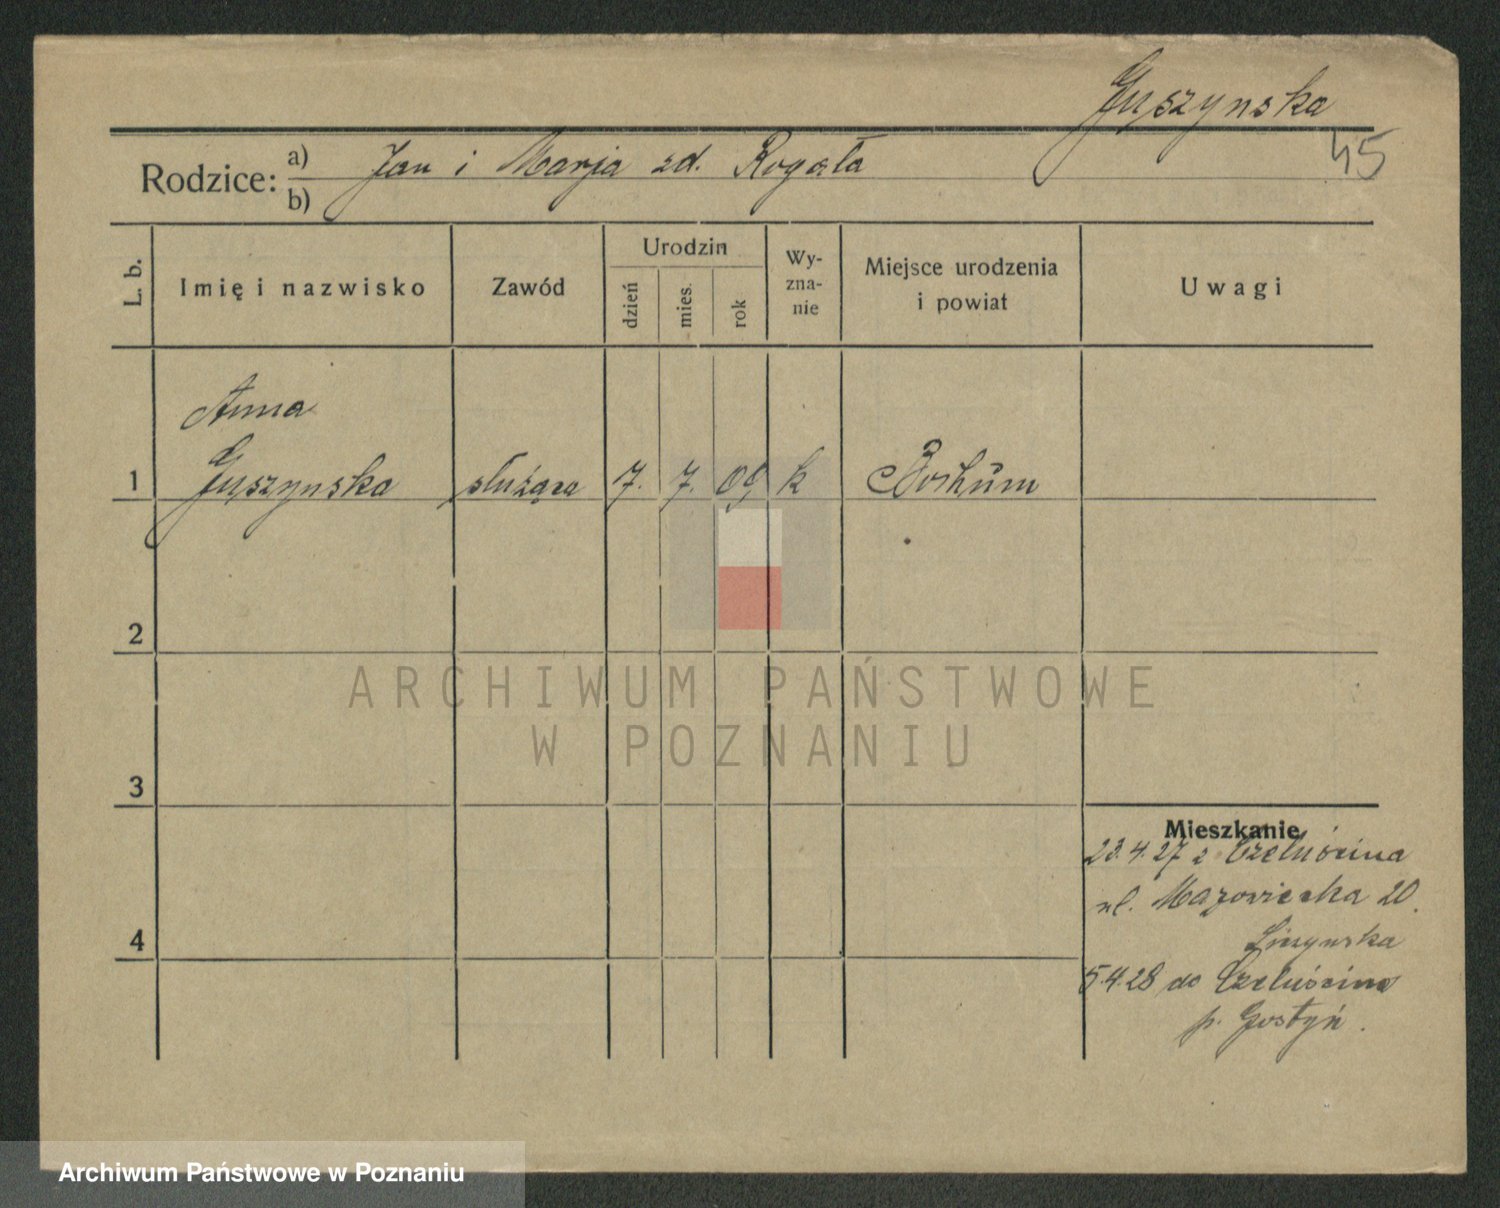 Gyszynska
45
Rodzice: a) Jan i Marja zd. Rogala
b)
L. b. Imię i nazwisko Zawód Urodzin dzień mies. rok Wyznanie Miejsce urodzenia i powiat Uwagi
Anna
1 Gyszynska służąca 7. 7. 09 k Bochum
2
ARCHIWUM PAŃSTWOWE
W POZNANIU
3
Mieszkanie
23.4.27 z Czeluścina
ul. Mazowiecka 20.
4
5.4.28 do Czeluścina
p. Gostyń.
Archiwum Państwowe w Poznaniu